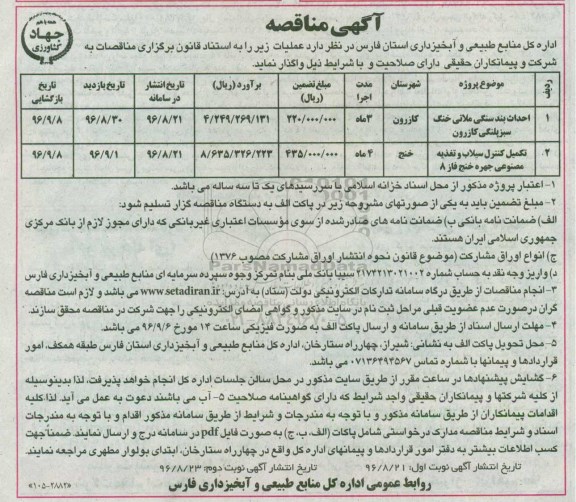 همه با هم
جهاد
کشاورزی
آگهی مناقصه
اداره کل منابع طبیعی و آبخیزداری استان فارس در نظر دارد عملیات زیر را به استناد قانون برگزاری مناقصات به
شرکت و پیمانکاران حقیقی دارای صلاحیت و با شرایط ذیل واگذار نماید.
ردیف | موضوع پروژه | شهرستان | مدت اجرا | مبلغ تضمین (ریال) | برآورد (ریال) | تاریخ انتشار در سامانه | تاریخ بازدید | تاریخ بازگشایی
۱ | احداث بند سنگی ملاتی خنگ سبزپلنگی کازرون | کازرون | ۳ ماه | ۲۲۰/۰۰۰/۰۰۰ | ۴/۲۴۹/۲۶۹/۱۳۱ | ۹۶/۸/۲۱ | ۹۶/۸/۳۰ | ۹۶/۹/۸
۲ | تکمیل کنترل سیلاب و تغذیه مصنوعی جهره خنج فاز ۸ | خنج | ۴ ماه | ۴۳۵/۰۰۰/۰۰۰ | ۸/۶۳۵/۳۲۶/۲۲۳ | ۹۶/۸/۲۱ | ۹۶/۹/۱ | ۹۶/۹/۸
۱- اعتبار پروژه مذکور از محل اسناد خزانه اسلامی با سررسیدهای یک تا سه ساله می باشد.
۲- مبلغ تضمین باید به یکی از صورتهای مشروحه زیر در پاکت الف به دستگاه مناقصه گزار تسلیم شود:
الف) ضمانت نامه بانکی ب) ضمانت نامه های صادرشده از سوی مؤسسات اعتباری غیربانکی که دارای مجوز لازم از بانک مرکزی
جمهوری اسلامی ایران هستند.
ج) انواع اوراق مشارکت (موضوع قانون نحوه انتشار اوراق مشارکت مصوب ۱۳۷۶)
د) واریز وجه نقد به حساب شماره ۲۱۷۴۲۱۳۰۲۱۰۰۲ سیبا بانک ملی بنام تمرکز وجوه سپرده سرمایه ای منابع طبیعی و آبخیزداری فارس
۳- انجام مناقصات از طریق درگاه سامانه تدارکات الکترونیکی دولت (ستاد) به آدرس: www.setadiran.ir می باشد و لازم است مناقصه
گران درصورت عدم عضویت قبلی مراحل ثبت نام در سایت مذکور و گواهی امضای الکترونیکی را جهت شرکت در مناقصه محقق سازند.
۴- مهلت ارسال اسناد از طریق سامانه و ارسال پاکت الف به صورت فیزیکی ساعت ۱۴ مورخ ۹۶/۹/۶ می باشد.
۵- محل تحویل پاکت الف به نشانی: شیراز، چهارراه ستارخان، اداره کل منابع طبیعی و آبخیزداری استان فارس طبقه همکف، امور
قراردادها و پیمانها با شماره تماس ۰۷۱۳۶۴۹۳۵۶۷ می باشد.
۶- گشایش پیشنهادها در ساعت مقرر از طریق سایت مذکور در محل سالن جلسات اداره کل انجام خواهد پذیرفت، لذا بدینوسیله
از کلیه شرکتها و پیمانکاران حقیقی واجد شرایط که دارای گواهینامه صلاحیت ۵- آب می باشند دعوت به عمل می آید. لذا کلیه
اقدامات پیمانکاران از طریق سامانه مذکور و با توجه به مندرجات و شرایط از طریق سامانه مذکور اقدام و با توجه به مندرجات
اسناد و شرایط مناقصه مدارک درخواستی شامل پاکات (الف، ب، ج) به صورت فایل pdf در سامانه درج و ارسال نمایند. ضمناً جهت
کسب اطلاعات بیشتر به دفتر امور قراردادها و پیمانهای اداره کل واقع در چهارراه ستارخان، ابتدای بولوار مطهری مراجعه نمایند.
تاریخ انتشار آگهی نوبت اول: ۹۶/۸/۲۱ تاریخ انتشار آگهی نوبت دوم: ۹۶/۸/۲۳
روابط عمومی اداره کل منابع طبیعی و آبخیزداری فارس
«۱۰۵-۲۸۸۲»